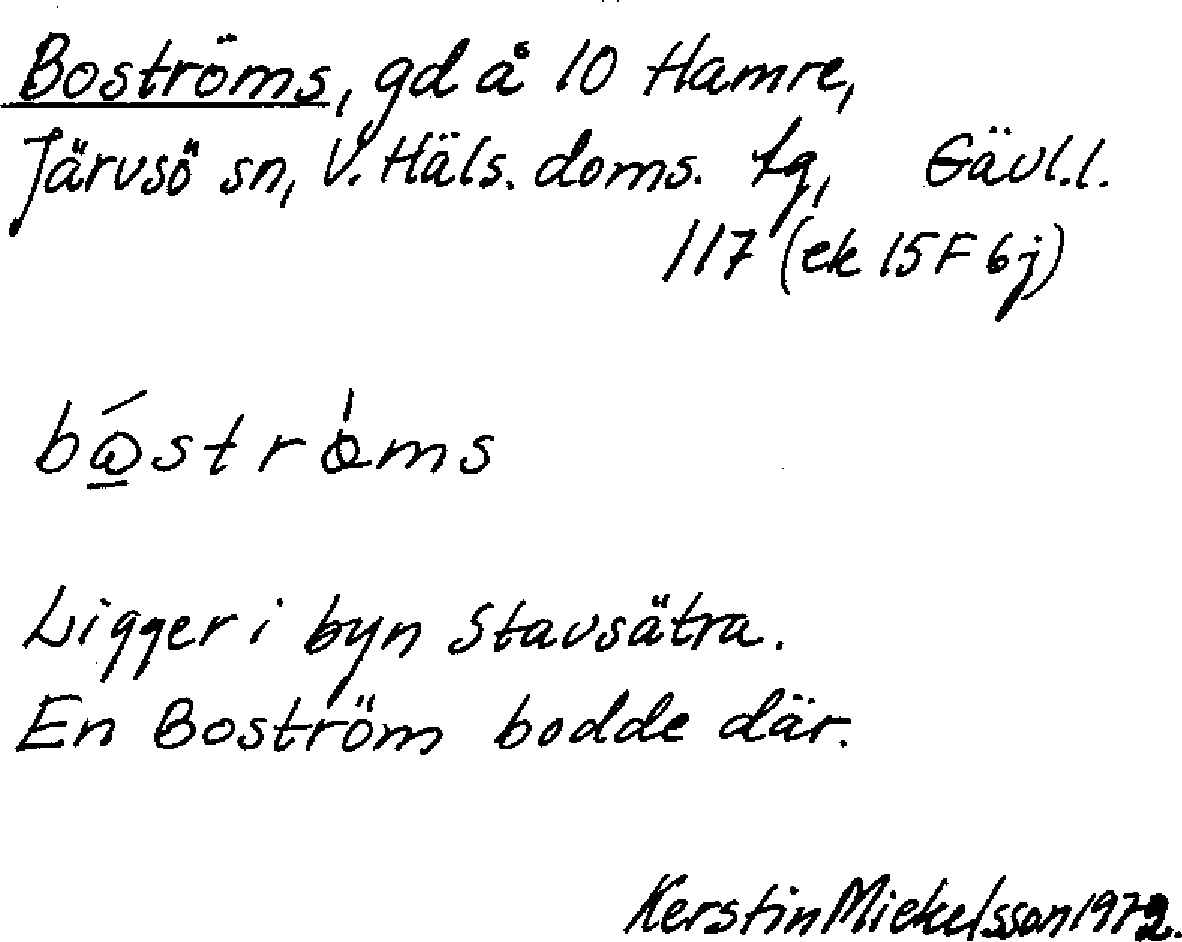 Boströms, gd å 10 Hamre,
Järvsö sn, V. Häls. doms. tg, Gävl.l.
117 (ek 15F 6j)
Ligger i byn Stavsätra.
En Boström bodde där.
Kerstin Mickelsson 1972.